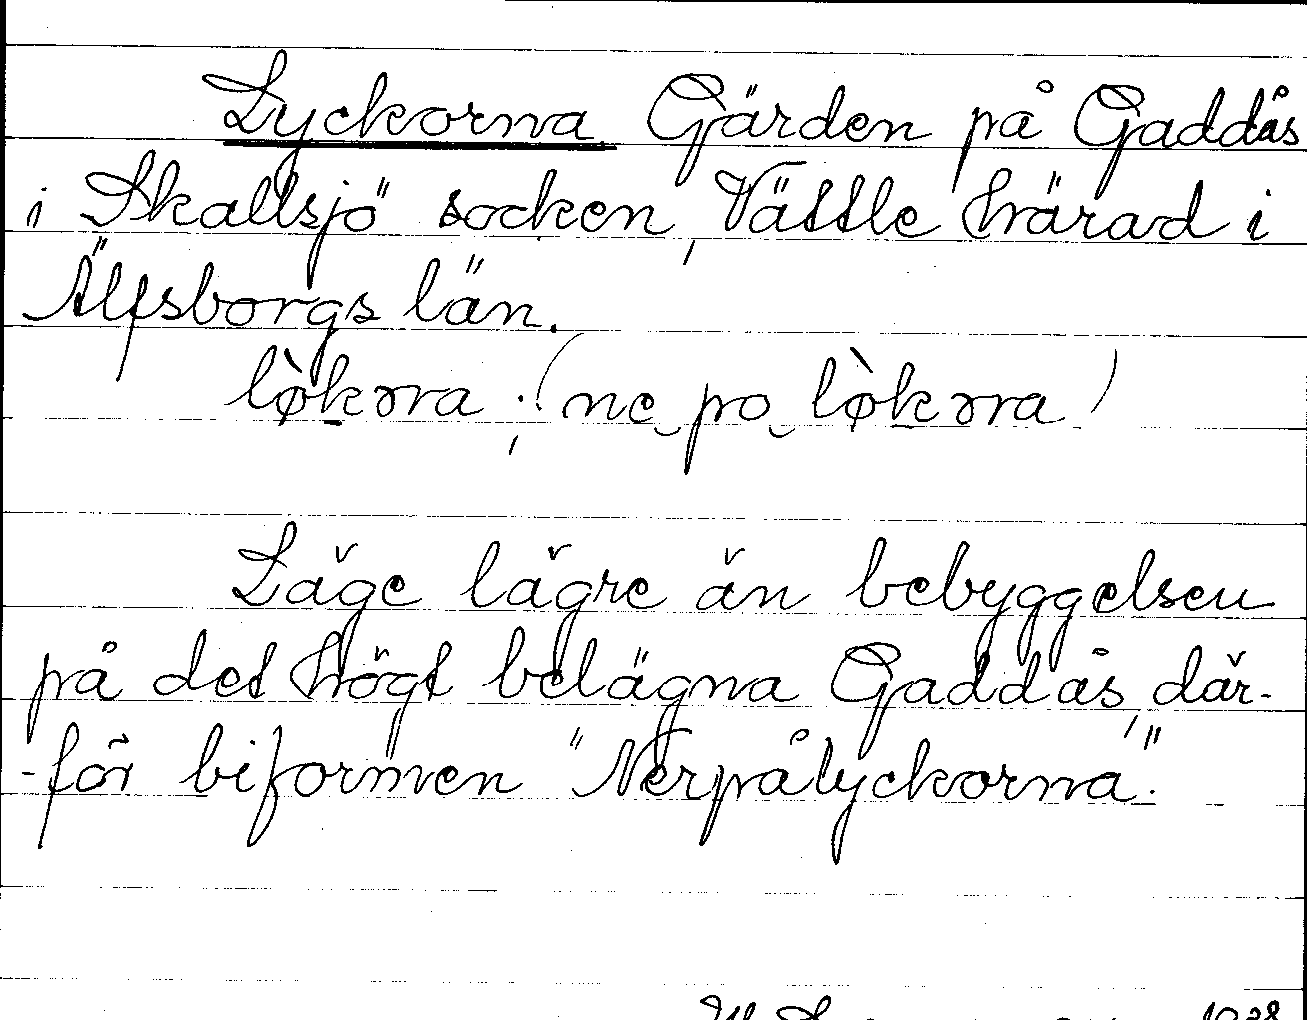 Lyckorna Gärden på Gaddås
i Skallsjö socken, Vättle härad i
Älfsborgs län.
lø̀kɔrna; (ne po lø̀kɔrna)
Läge lägre än bebyggelsen
på det högt belägna Gaddås, där-
-för biformen "Nerpålyckorna".
1938